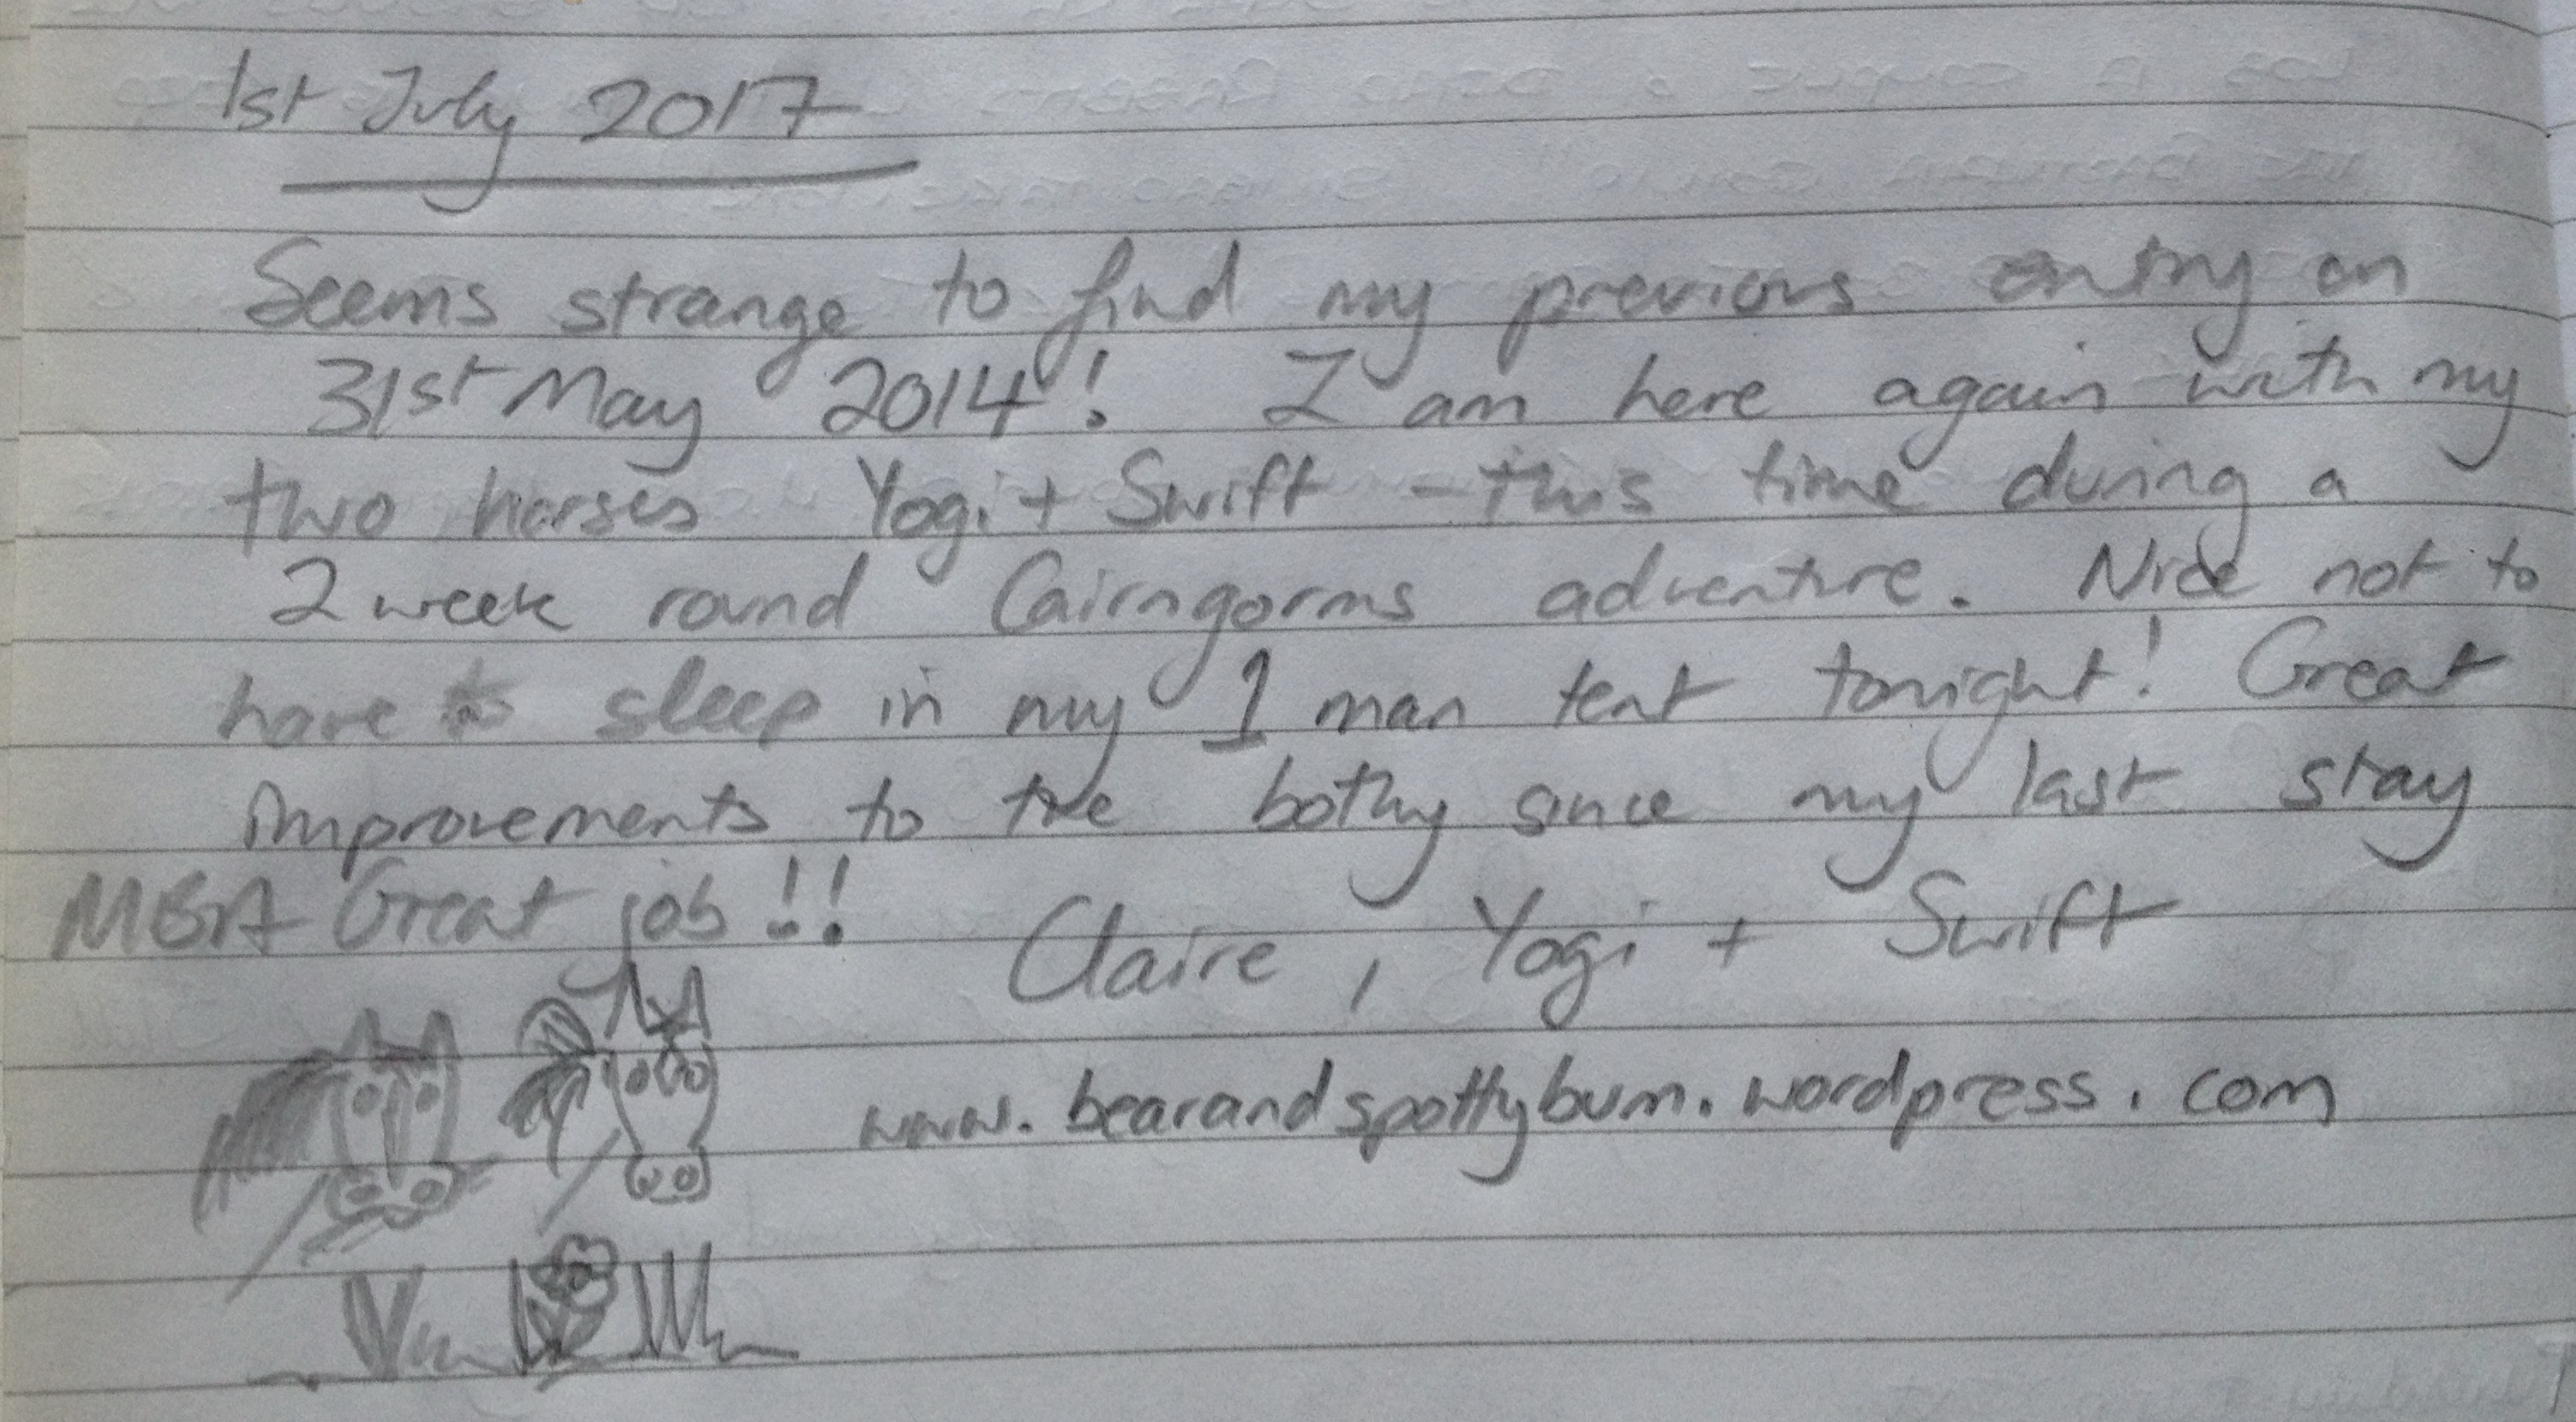 1st July 2017
Seems strange to find my previous entry on
31st May 2014! I am here again with my
two horses Yogi + Swift - this time during a
2 week round Cairngorms adventure. Nice not to
have to sleep in my 1 man tent tonight! Great
improvements to the bothy since my last stay
MBA Great job!!
Claire, Yogi + Swift
www.bearandspottybum.wordpress.com